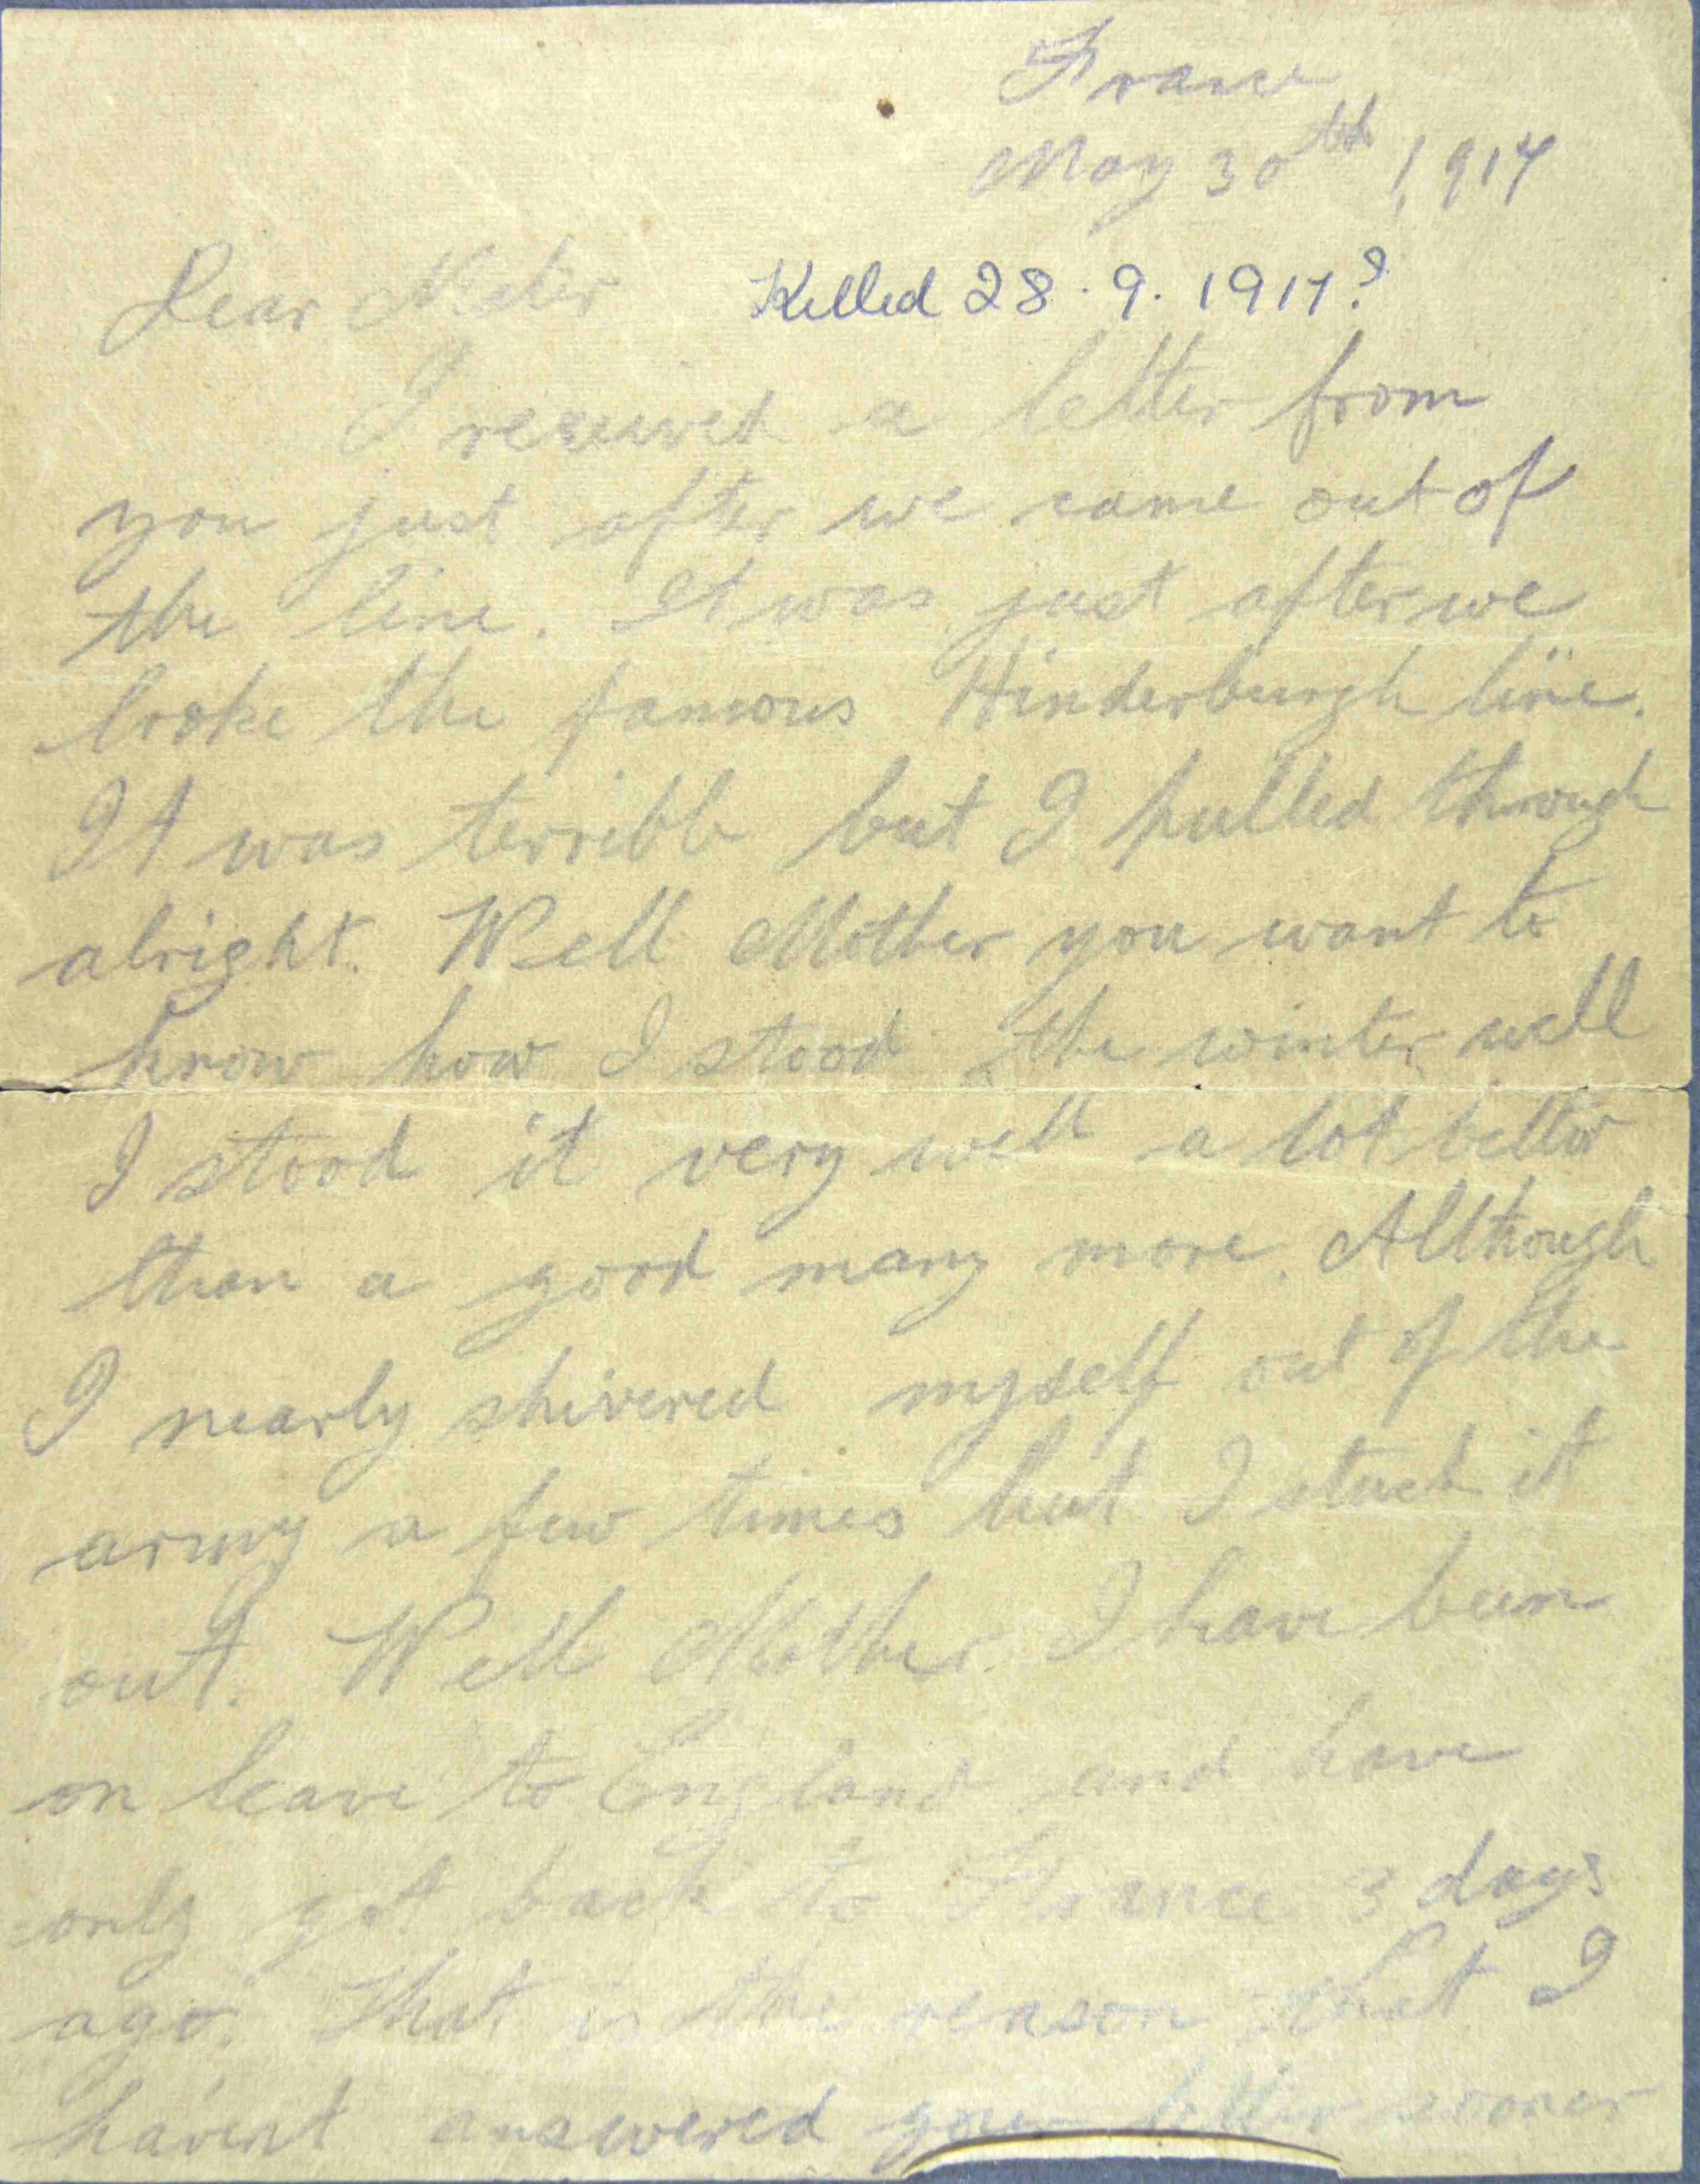 France
May 30th 1917
Dear Mater
Killed 28.9.1917?
I received a letter from
you just after we came out of
the line. It was just after we
broke the famous Hinderburgh line.
It was terrible but I pulled through
alright. Well Mother you want to
know how I stood the winter well
I stood it very well a lot better
than a good many more. Although
I nearly shivered myself out of the
army a few times but I stuck it
out. Well Mother. I have been
on leave to England and have
only got back to France 3 days
ago. That is the reason that I
havent answered your letter sooner